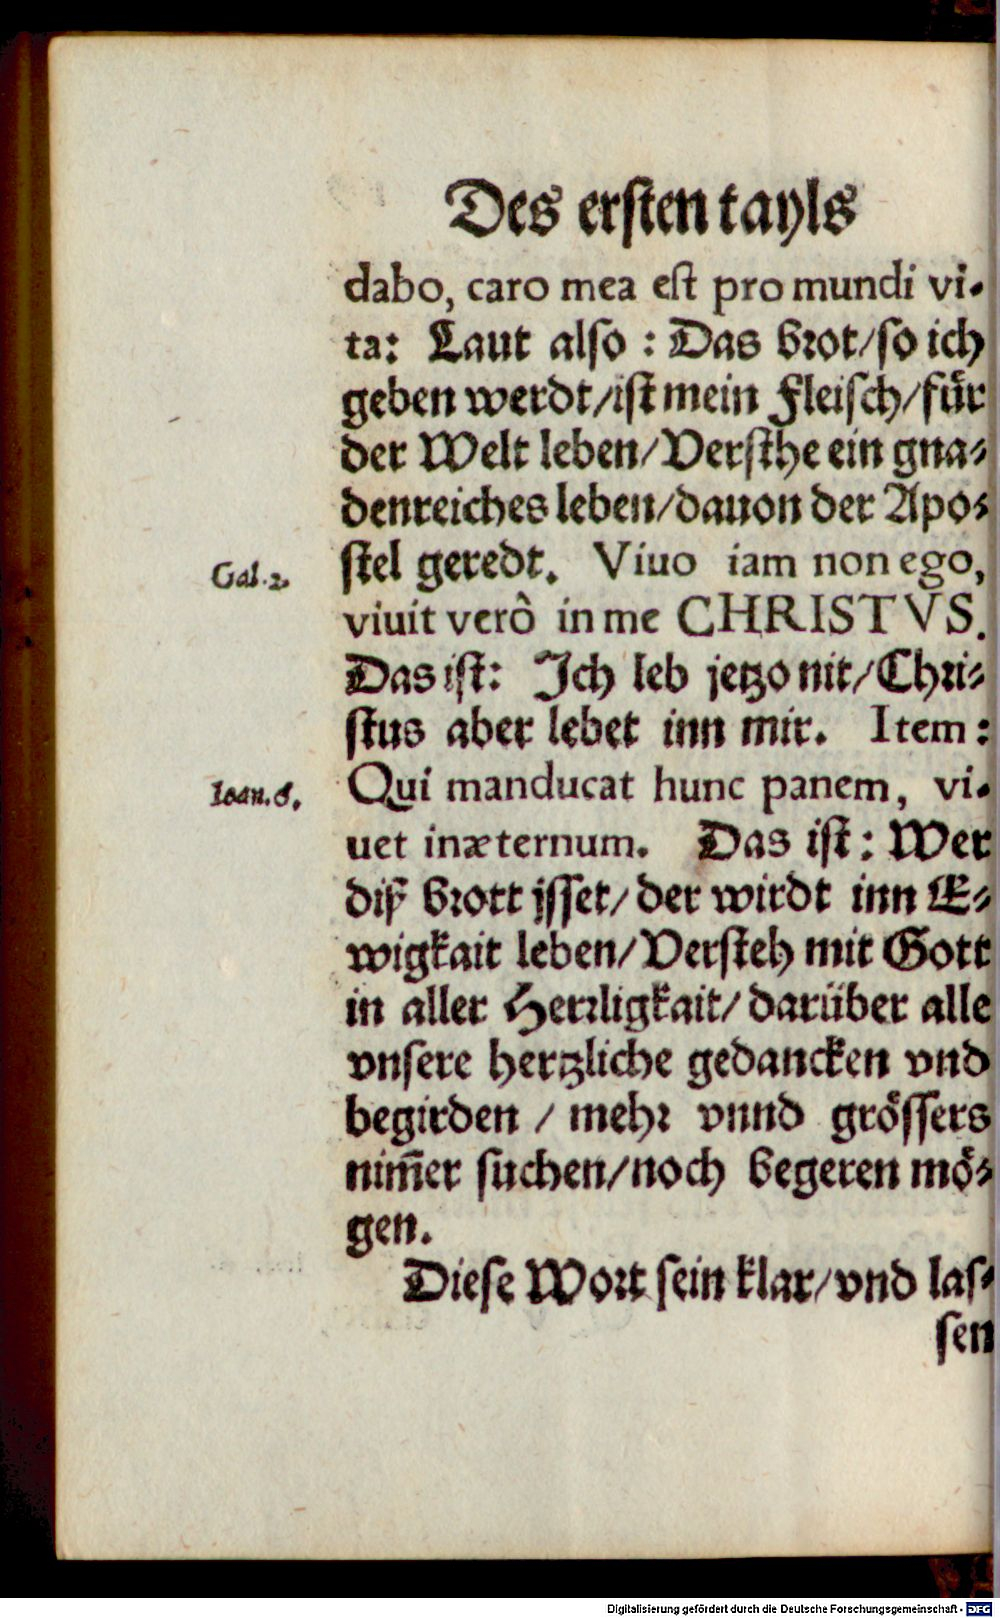 Des ersten tayls
dabo, caro mea est pro mundi vi-
ta: Laut also : Das brot/so ich
geben werdt/ist mein Fleisch/für
der Welt leben/Versthe ein gna-
denreiches leben/dauon der Apo-
Gal. 2. stel geredt. Viuo iam non ego,
viuit verò in me CHRISTVS.
Das ist: Ich leb jetzo nit/Chri-
stus aber lebet inn mir. Item :
Ioan. 6. Qui manducat hunc panem, vi-
uet in æternum. Das ist : Wer
diß brott jsset/der wirdt inn E-
wigkait leben/Versteh mit Gott
in aller Herrligkait/darüber alle
vnsere hertzliche gedancken vnd
begirden / mehr vnnd grössers
nim̅er suchen/noch begeren mö-
gen.
Diese Wort sein klar/vnd las-
sen
Digitalisierung gefördert durch die Deutsche Forschungsgemeinschaft - DFG